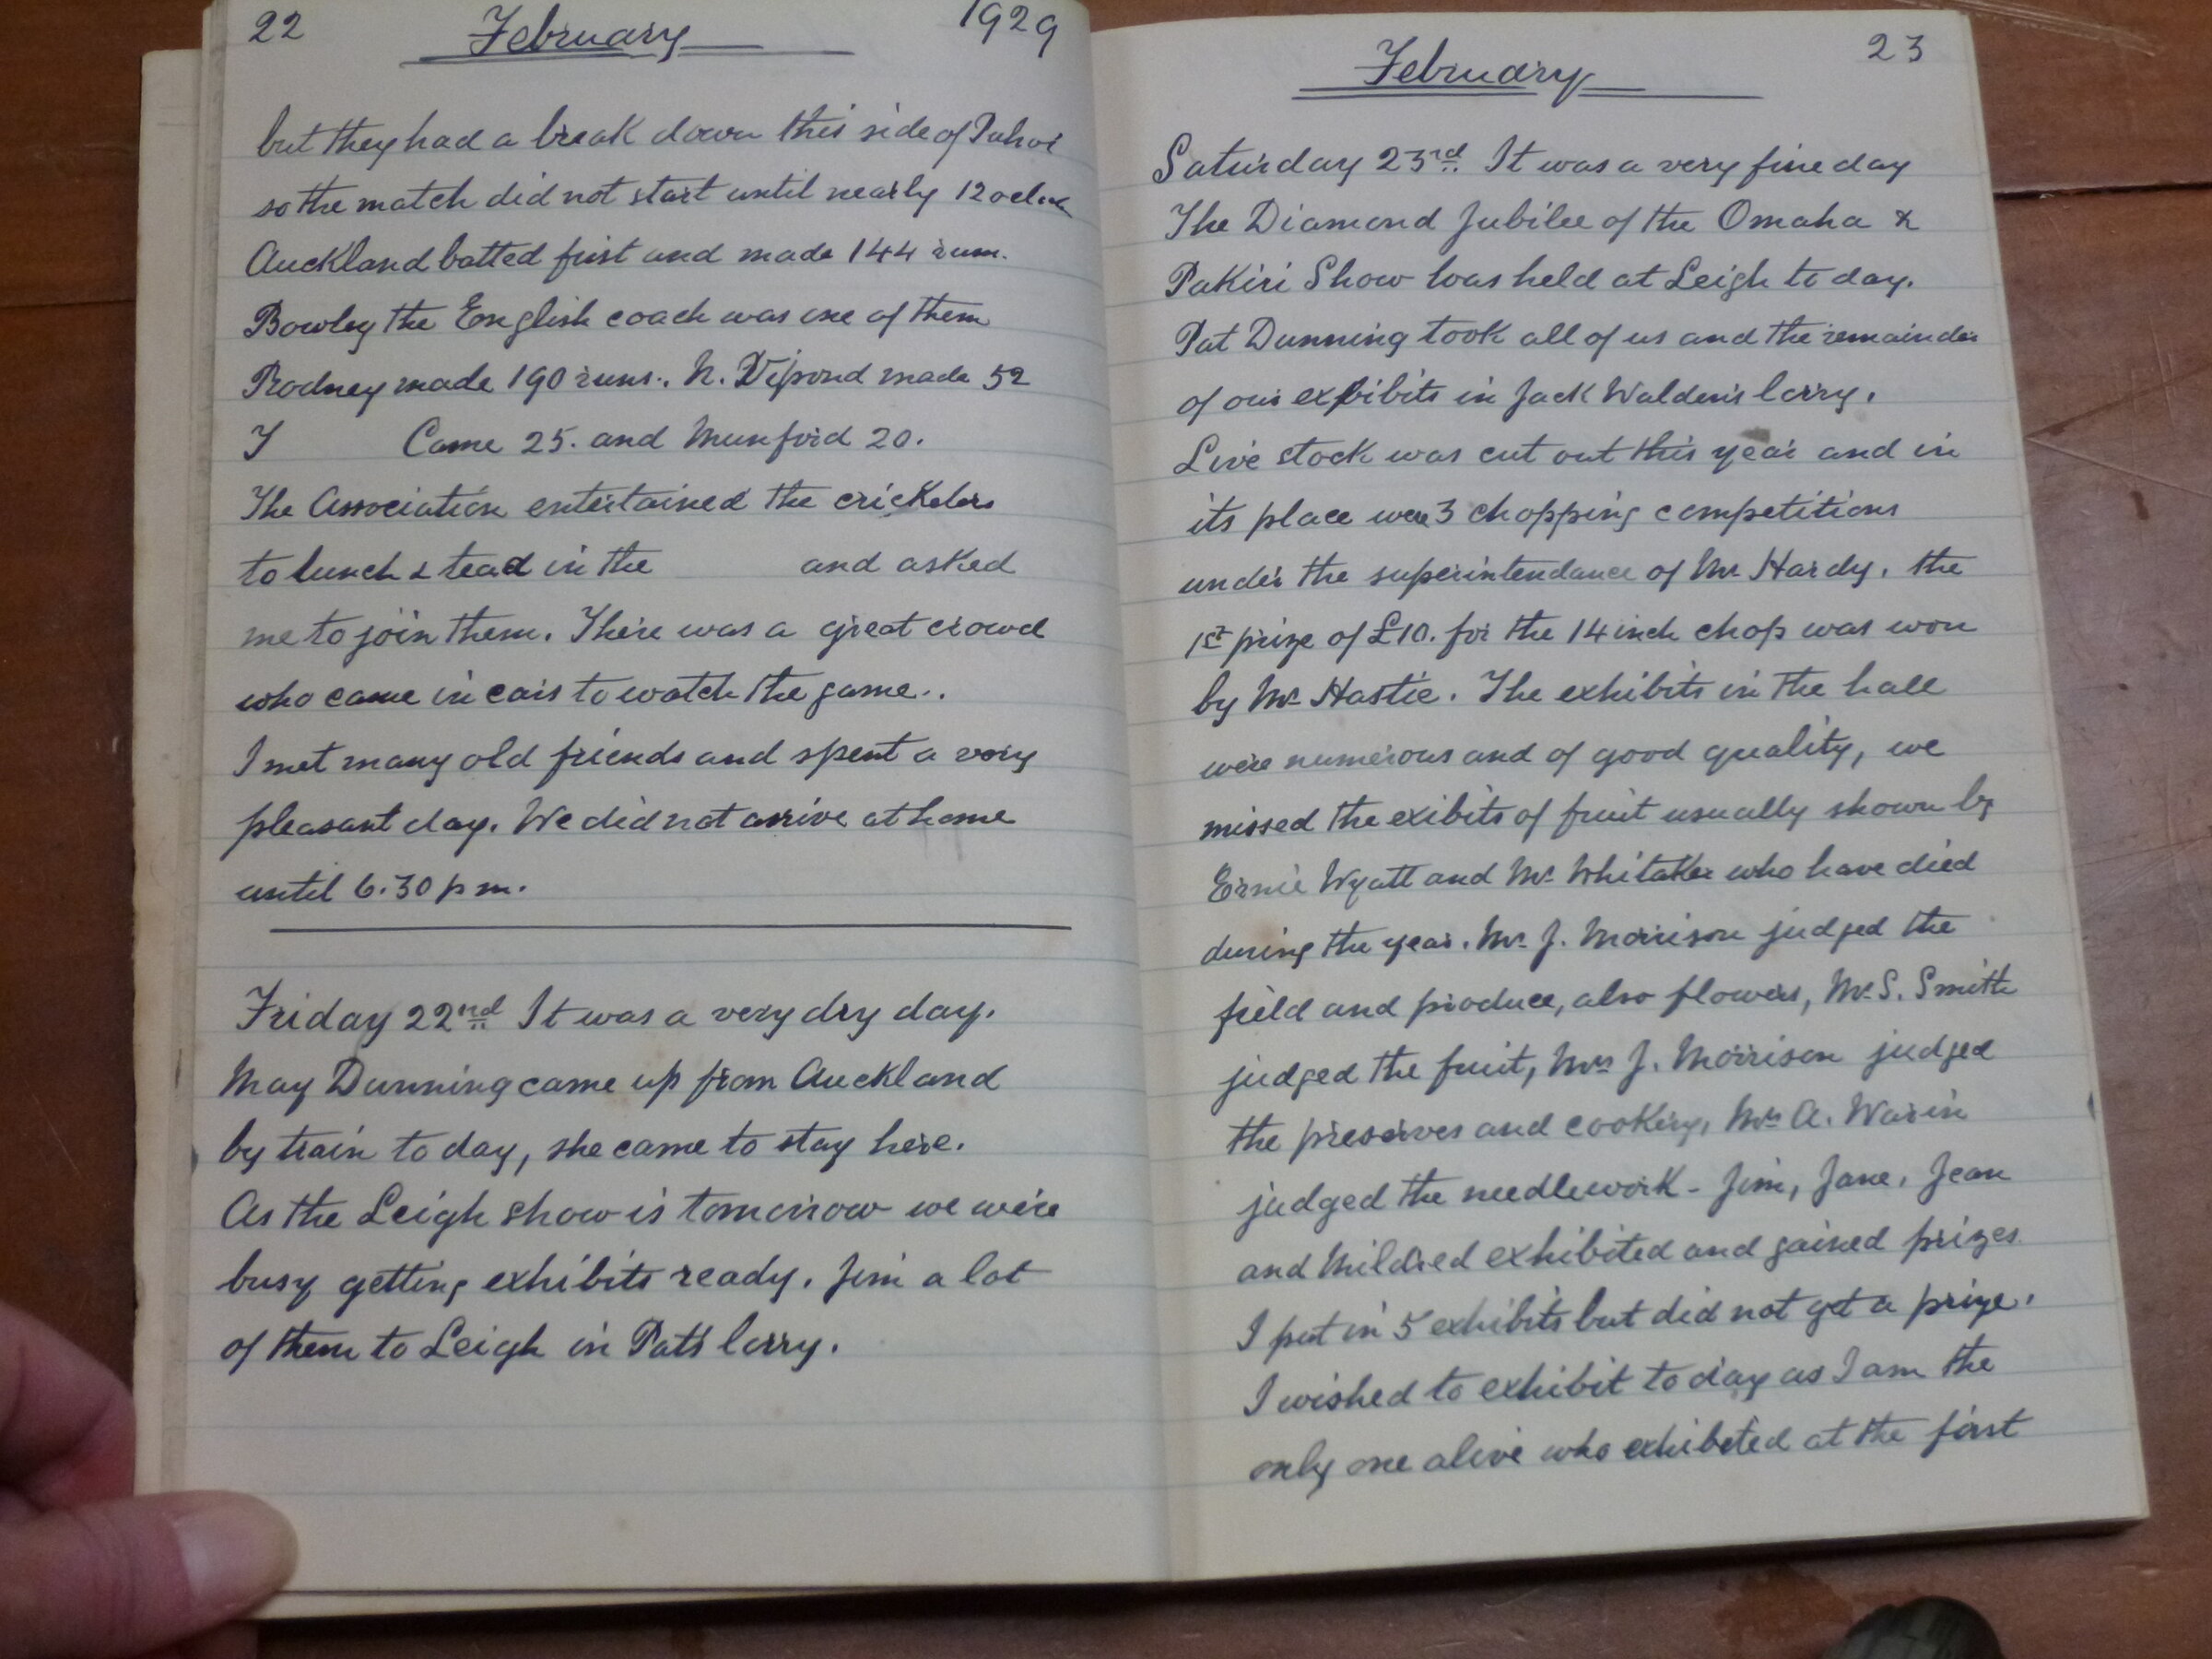 22 February 1929
but they had a break down this side of Puhoi
so the match did not start until nearly 12 oclock
Auckland batted first and made 144 runs.
Bowley the English coach was one of them
Rodney made 190 runs., N. Dipond made 52
I Came 25. and Munford 20.
The Association entertained the cricketers
to lunch & tea in the and asked
me to join them. There was a great crowd
who came in cars to watch the game..
I met many old friends and spent a very
pleasant day. We did not arrive at home
until 6.30 p m.
Friday 22nd It was a very dry day.
May Dunning came up from Auckland
by train to day, she came to stay here.
As the Leigh show is tomorrow we were
busy getting exhibits ready. Jim a lot
of them to Leigh in Pat's lorry.
February 23
Saturday 23rd. It was a very fine day
The Diamond Jubilee of the Omaha &
Pakiri Show was held at Leigh to day.
Pat Dunning took all of us and the remainder
of our exhibits in Jack Walden's lorry.
Live stock was cut out this year and in
its place were 3 chopping competitions
under the superintendance of Mr Hardy. the
1st prize of £10. for the 14 inch chop was won
by Mr Hastie. The exhibits in the hall
were numerous and of good quality, we
missed the exibits of fruit usually shown by
Ernie Wyatt and Mr Whitaker who have died
during the year. Mr J. Morrison judged the
field and produce, also flowers, Mr S. Smith
judged the fruit, Mrs J. Morrison judged
the preserves and cooking, Mrs A. Warin
judged the needlework - Jim, Jane, Jean
and Mildred exhibited and gained prizes
I put in 5 exhibits but did not get a prize.
I wished to exhibit to day as I am the
only one alive who exhibited at the first